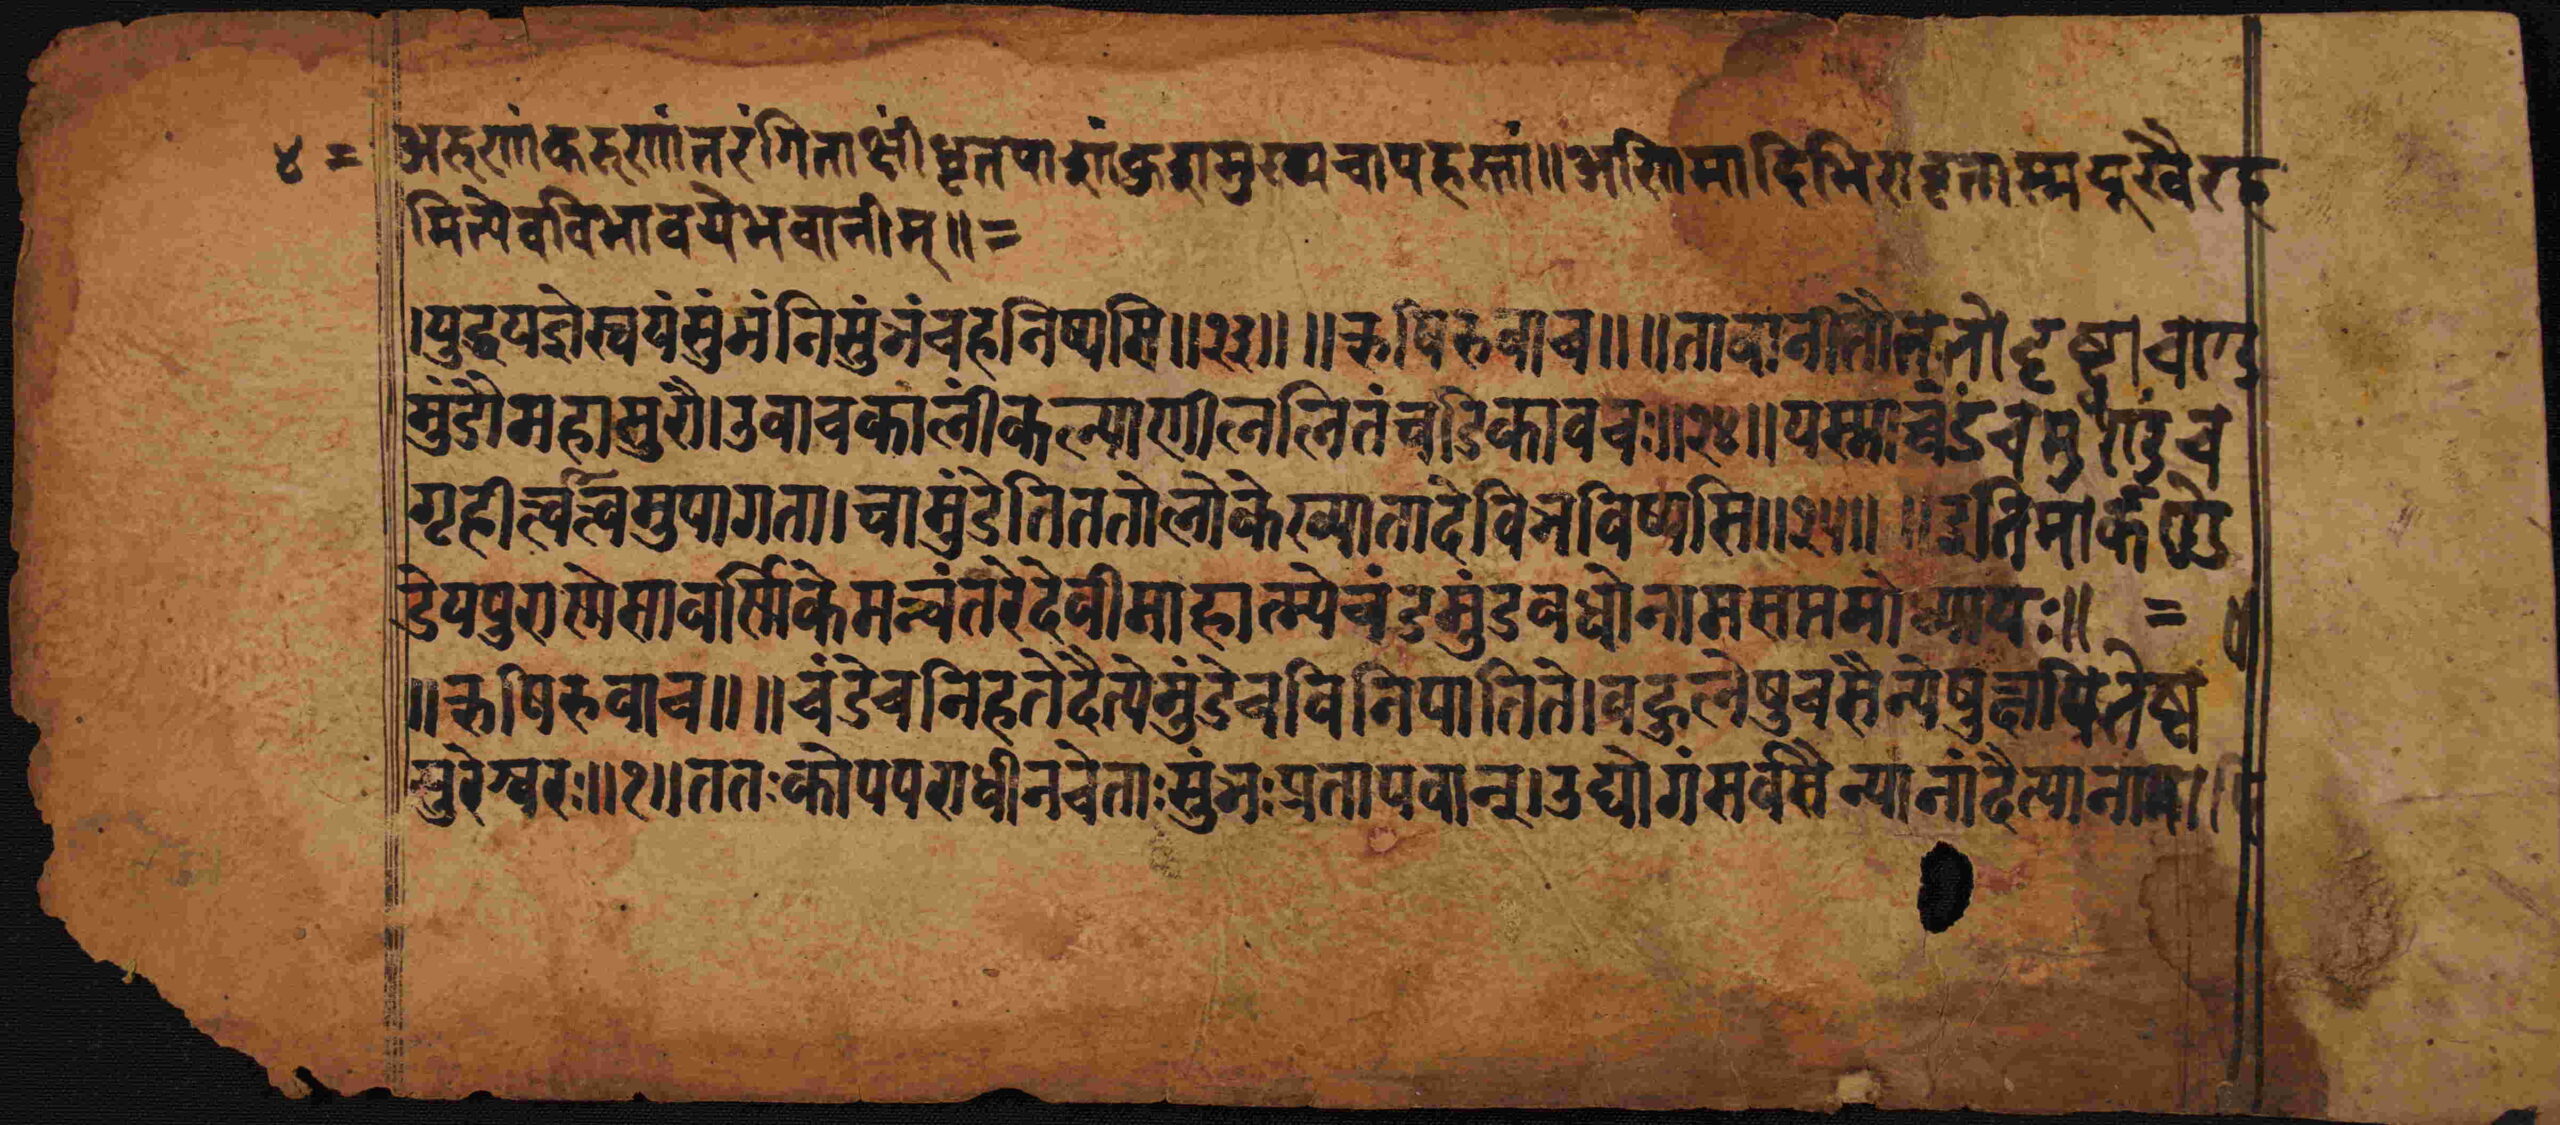 ४ = अरुणां करुणांतरंगिताक्षीं धृतपाशांकुशपुष्पचापहस्तां॥ अणिमादिभिरावृतास्मयूखैरह
मित्येवविभावयेभवानीम्॥=
।युद्धयज्ञेस्वयंसुंभंनिसुंभंचहनिष्यसि॥२३॥ ॥ऋषिरुवाच॥ ॥तावानीतौततोदृष्ट्वाचण्ड
मुंडौमहासुरौ।उवाचकालींकल्याणीललितंचंडिकावचः॥२४॥यस्माच्चंडंचमुण्डंच
गृहीत्वात्वमुपागता।चामुंडेतिततोलोकेख्यातादेविभविष्यसि॥२५॥ ॥इतिमार्कण्डे
डेयपुराणेसावर्णिकेमन्वंतरेदेवीमाहात्म्येचंडमुंडवधोनामसप्तमोध्यायः॥ =
॥ऋषिरुवाच॥ ॥चंडेचनिहतेदैत्येमुंडेचविनिपातिते।बहुलेषुचसैन्येषुक्षयितेष्व
सुरेश्वरः॥१॥ततःकोपपराधीनचेताःसुंभःप्रतापवान्।उद्योगंसर्वसैन्यानांदैत्यानामा